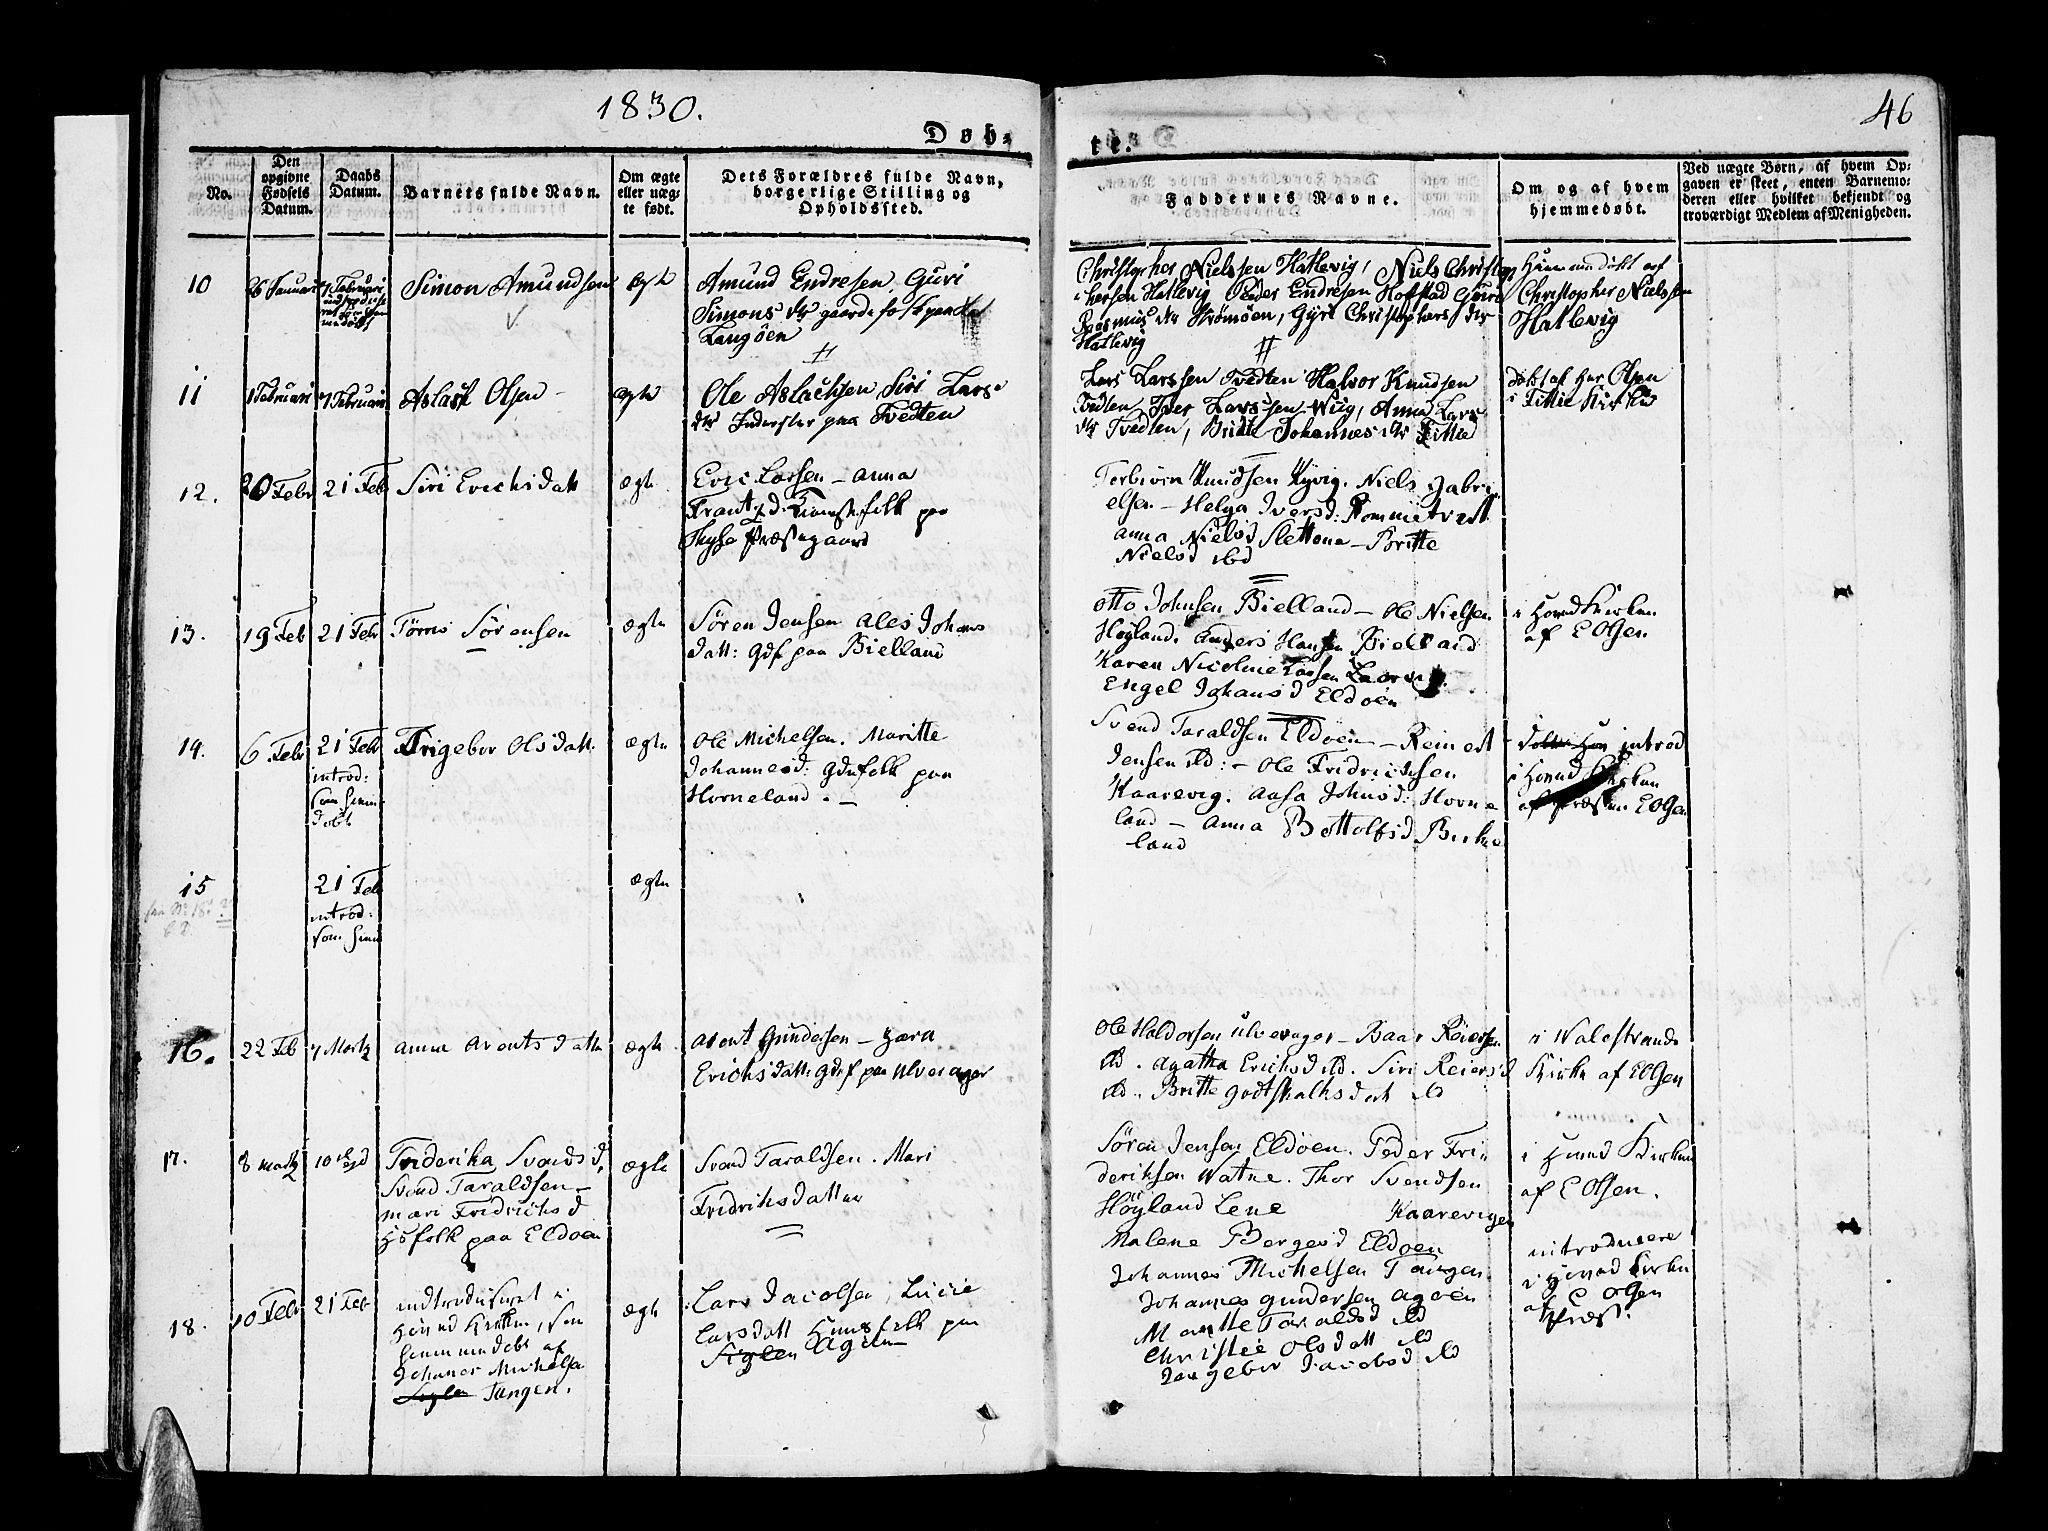 1830.
46
Døb-
te.
No.
Den opgivne Fødsels Datum.
Daabs Datum.
Barnets fulde Navn.
Om ægte eller uæg-
te født.
Dets Forældres fulde Navn,
borgerlige Stilling og
Opholdssted.
Faddernes Navne.
Om og af hvem
hjemmedøbt.
Ved uægte Børn, af hvem Op-
gaven er skeet, enten Barnemo-
deren eller hvilket bekjendt og
troværdigt Medlem af Menigheden.
10
26 Januari
7 Februari
Simon Amundsen
ægte
Amund Endresen, Guri
Simons dtr gaardefolk paa
Langöen
Christopher Nielssen Hatlevig, Niels Christop
hersen Hatlevig Peder Endresen Hofstad Guri
Rasmus dtr Strömöen, Gyri Christophers dtr
Hatlevig
Hiemmedöbt af
Christopher Nielssen
Hatlevig
11
1 Februari
7 Februari
Aslak Olsen
ægte
Ole Aslachsen Siri Lars
dtr Inderster paa Tvedten
Lars Larssen Tvedten Halvor Knudsen
Tvedten, Iver Larssen Wiig, Anna Lars
dtr Tvedten, Britte Johannes dtr Fittie
döbt af Hr Olsen
i Fittie Kirke
12.
20 Febr
21 Feb
Siri Erichsdatt
ægte
Eric Larsen - Anna
Frantzd. folk paa
Præstegaard
Torbiörn Knudsen Kyvig. Niels Gabri
elsen - Helga Iversd: Rommetvedt
Anna Nielsd Slettone - Britte
Nielsd ibd
13.
19 Feb
21 Febr
Törris Sörensen
ægte
Sören Jensen Ales Johans
datt: Gdf paa Bielland
Otto Johnsen Bielland - Ole Nielsen
Höyland. Anders Hansen Bielland
Karen Nicoline Larsen
Engel Johansd Eldöen
i Hovedkirken
af E Olsen
14.
6 Febr
21 Febr
introd:
som hiem
döbt
Ingebor Olsdatt.
ægte
Ole Michelsen. Maritte
Johannesd: Gdefolk paa
Horneland. -
Svend Taraldsen Eldöen - Reinert
Jensen ibd: - Ole Fridrichsen
Kaarevig. Aasa Johnsd: Horne
land - Anna Bottolfsd Birke
land
introd
i Hovedkirken
af Præsten E Olsen
15
21 Feb
introd:
som hiem
ægte
16.
22 Feb
7 Martz
Anna Arentsdatt
ægte
Arent Gundersen -
Erichsdatt: Gdf paa Ulverager
Ole Haldorsen Ulverager - Baar Reiersen
ibd. Agatha Erichsd ibd. Siri Reiersd
ibd. Britte Godtskalksdatt ibd
i Walestrands
Kirke af E Olsen
17.
8 Martz
Frederika Svendsd,
Svend Taraldsen -
Mari Fridrichsd
folk paa Eldöen
ægte
Svend Taraldsen. Mari
Fridrichsdatter
Sören Jensen Eldöen. Peder Fri
deriksen Watne. Thor Svendsen
Höyland Lene Kaarevigen
Malene Bergesd Eldöen
i Hoved Kirken
af E Olsen.
18.
10 Febr
21 Feb
indtroduseret i
Hoved Kirken, som
hiemmedöbt af
Johanes Michelsen
Tangen.
ægte
Lars Jacobsen, Lucie
Larsdatt Huusfolk paa
Siglen Agöen
Johannes Michelsen Tangen.
Johannes Gundersen Agöen
Maritte Taraldsd ibd
Christie Olsdatt ibd
Ingebor Jacobsd ibd
introducere
i Hoved Kirken
af E Olsen
Præst.